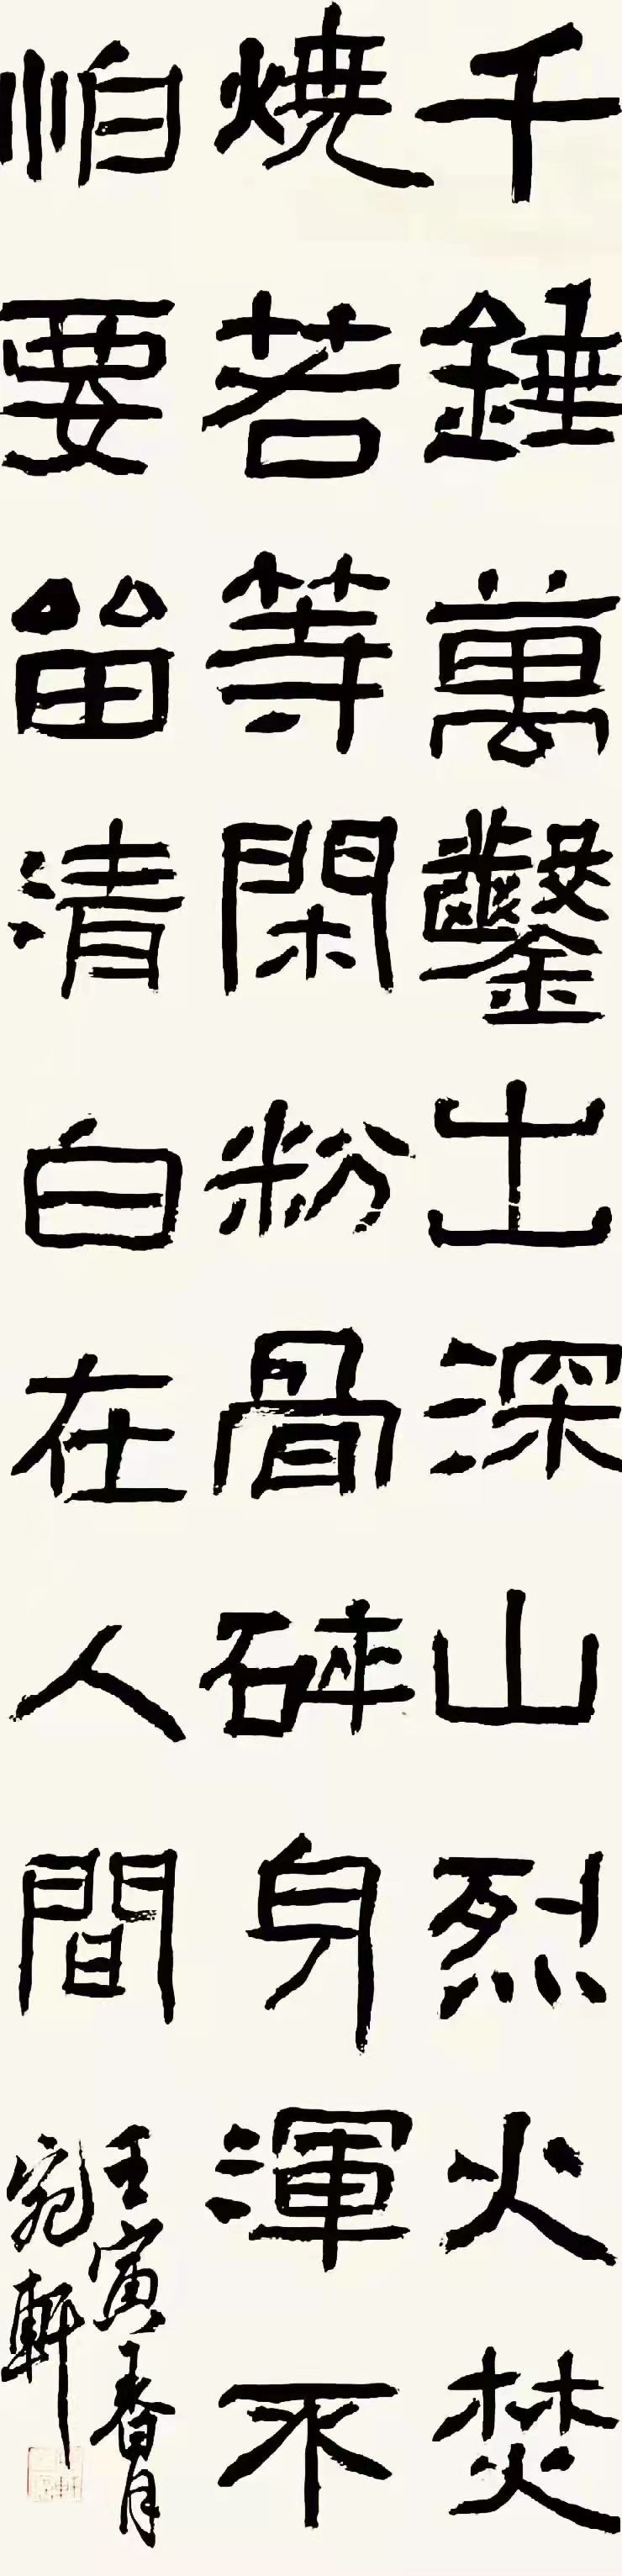 千錘萬鑿出深山烈火焚
燒若等閑粉骨碎身渾不
怕要留清白在人間
壬寅春月
宛軒